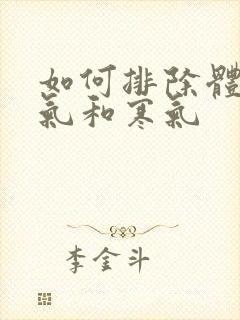 如何排除體
氣和寒氣
李金斗